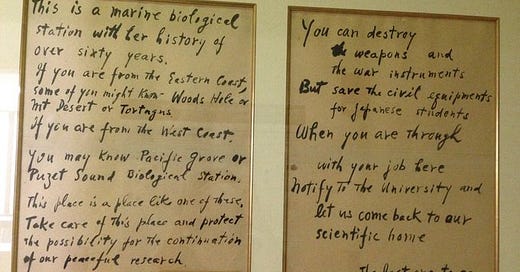 This is a marine biological
station with her history of
over sixty years.
If you are from the Eastern Coast,
some of you might know Woods Hole or
Mt Desert or Tortugas.
If you are from the West Coast,
You may know Pacific Grove or
Puget Sound Biological Station.
This place is a place like one of these.
Take care of this place and protect
the possibility for the continuation
of our peaceful research.
You can destroy
the weapons and
the war instruments
But save the civil equipments
for Japanese students
When you are through
with your job here
Notify to the University and
let us come back to our
scientific home